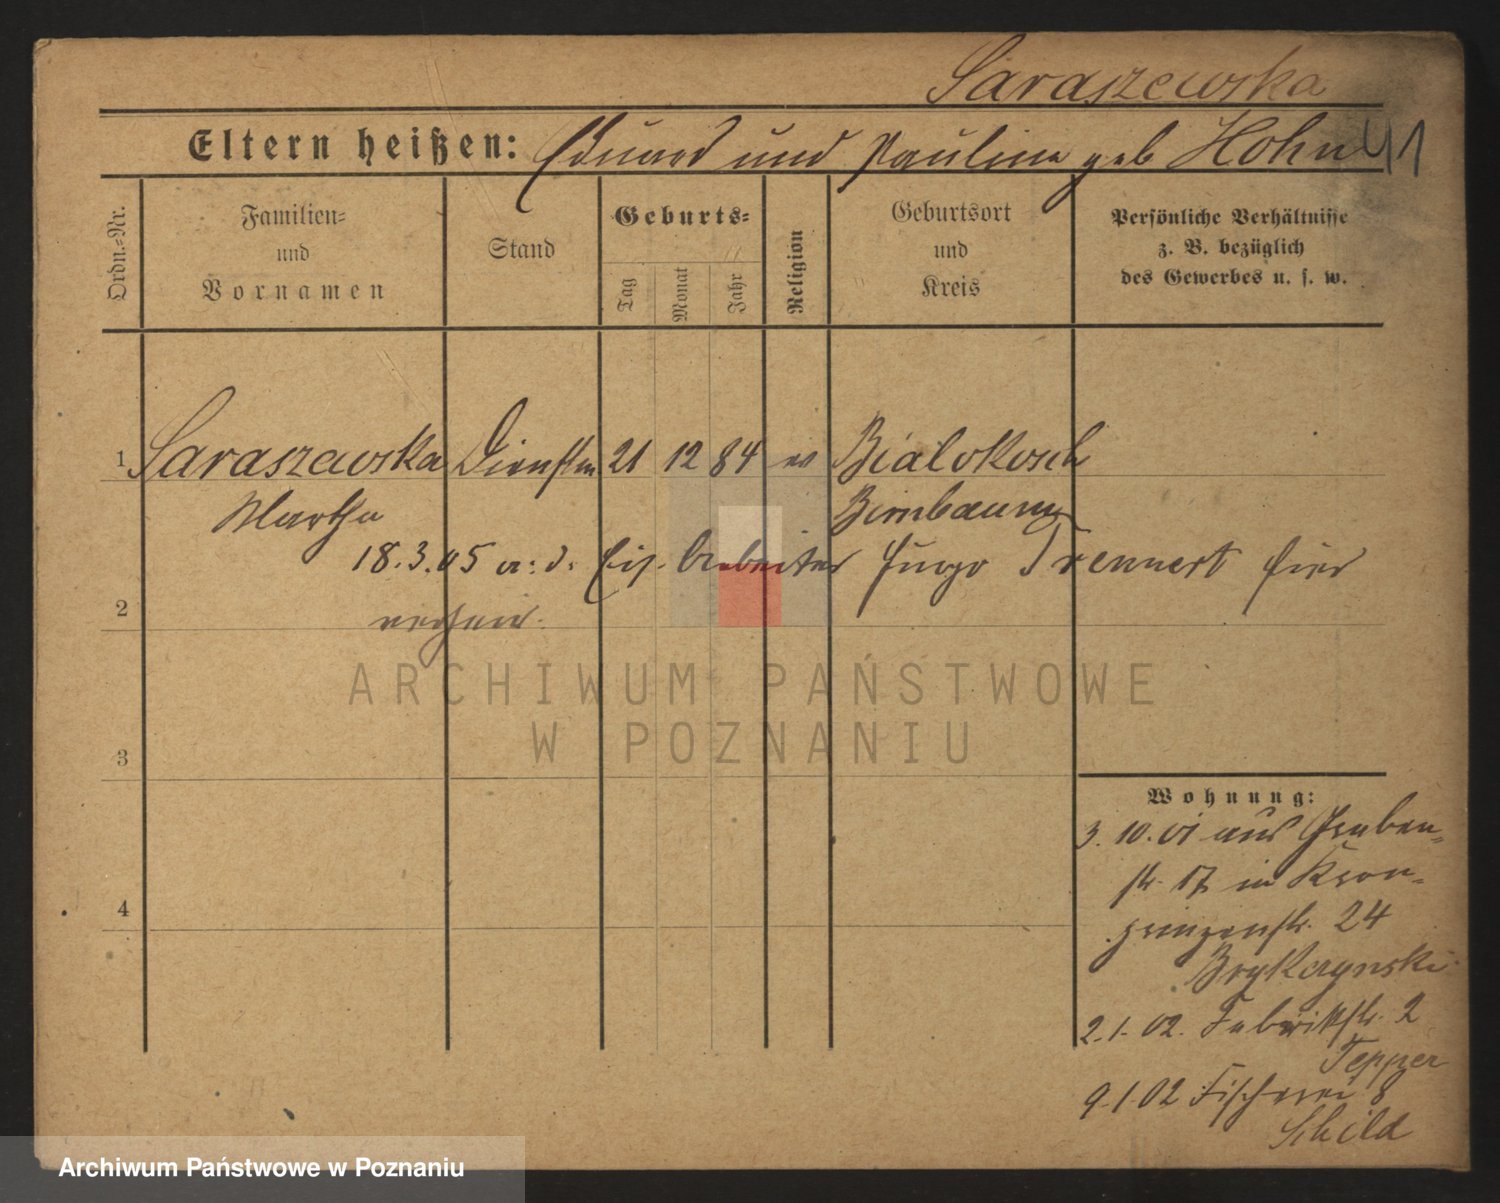 Saraszewska
Eltern heißen: Eduard und Pauline geb Hohn 41
Ordn.=Nr.
Familien=
und
Vornamen
Stand
Geburts=
Tag
Monat
Jahr
Religion
Geburtsort
und
Kreis
Persönliche Verhältnisse
z. B. bezüglich
des Gewerbes u. s. w.
1 Saraszewska Dienstm 21 12 84 ev Bialokosch
Martha Birnbaum
18.3.05 Arbeiter Hugo Trennert hier
2
verheir.
ARCHIWUM PAŃSTWOWE
W POZNANIU
3
Wohnung:
3.10.01 aus Graben=
str. 17 in Kron=
prinzenstr. 24
4
2.1.02. Fabrikstr. 2
Tepper
9.1.02 Fischerei 8
Schild
Archiwum Państwowe w Poznaniu